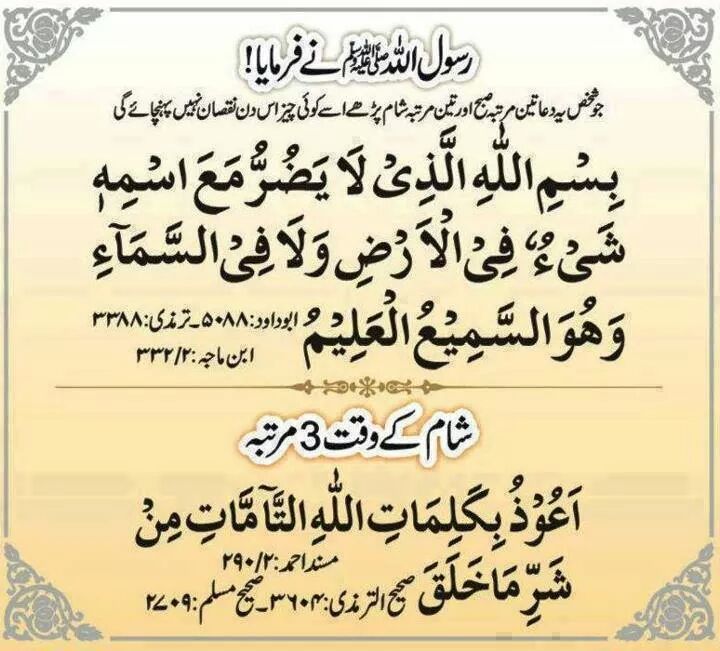 رسول اللہ ﷺ نے فرمایا!
جو شخص یہ دعا تین مرتبہ صبح اور تین مرتبہ شام پڑھے اسے کوئی چیز اس دن نقصان نہیں پہنچائے گی
بِسْمِ اللّٰهِ الَّذِیْ لَا یَضُرُّ مَعَ اسْمِهٖ
شَیْءٌ فِی الْاَرْضِ وَلَا فِی السَّمَآءِ
وَهُوَ السَّمِیْعُ الْعَلِیْمُ ابوداود:۵۰۸۸۔ترمذی:۳۳۸۸
ابن ماجہ:۳۳۲/۲
شام کے وقت 3 مرتبہ
اَعُوْذُ بِکَلِمَاتِ اللّٰهِ التَّآمَّاتِ مِنْ
شَرِّ مَا خَلَقَ مسند احمد:۲۹۰/۲
صحیح الترمذی:۳۶۰۴۔صحیح مسلم:۲۷۰۹